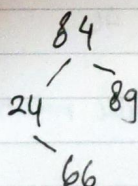 84
24 89
66